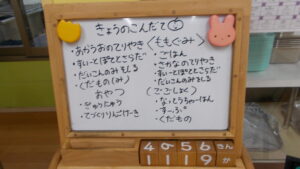 きょうのこんだて
あかうおのてりやき
すいーとぽてとさらだ
だいこんのみそしる
くだもの(みかん)
おやつ
ぎゅうにゅう
てづくりりんごけーき
〈ももぐみ〉
ごはん
さかなのてりやき
すいーとぽてとさらだ
だいこんのみそしる
(ごごしょく)
なっとうちゃーはん
すーぷ
くだもの
4 5 6 さん
1 1 1 9 か